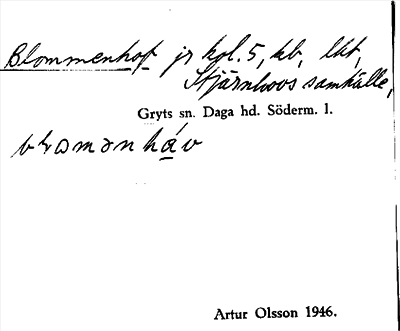 Blommenhof jr kgl. 5, hb, lht,
Stjärnhovs samhälle,
Gryts sn. Daga hd. Söderm. l.
Artur Olsson 1946.